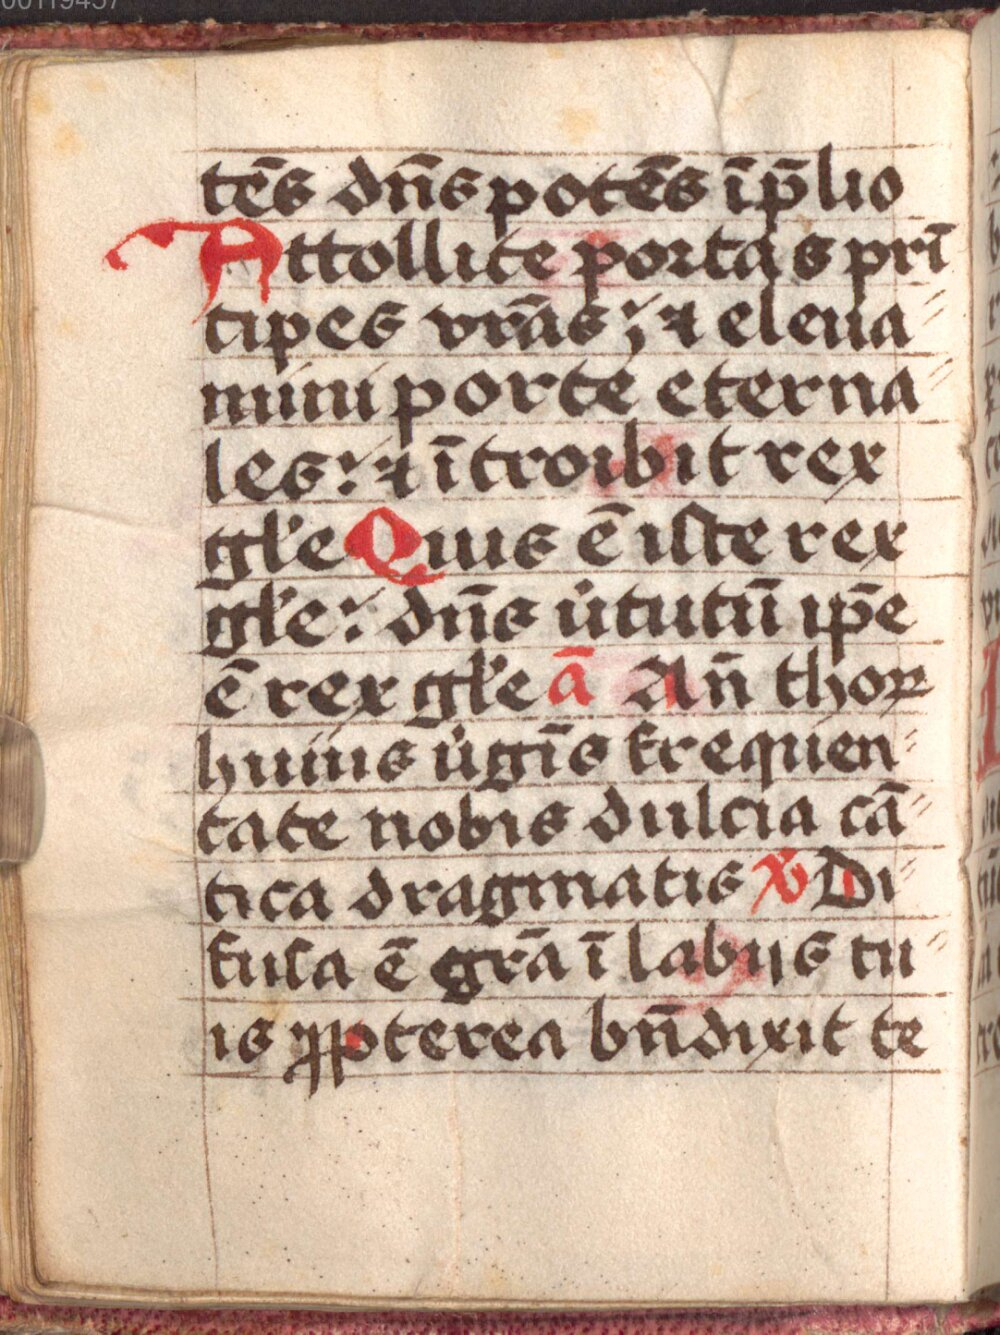 00119457
tēs dn̄s potēs ī p̄lio
Attollite portas prī
cipes vrās : ⁊ eleua
mini porte eterna
les : ⁊ ītroibit rex
gl'e Quis ē iste rex
gl'e : dn̄s v̇tutū ip̄e
ē rex gl'e ā An̄ thoꝝ
huius v̇gīs freq̄uen
tate nobis dulcia cā
tica dragmatis Di
fusa ē grā ī labijs tu
is ꝓpterea bn̄dixit te